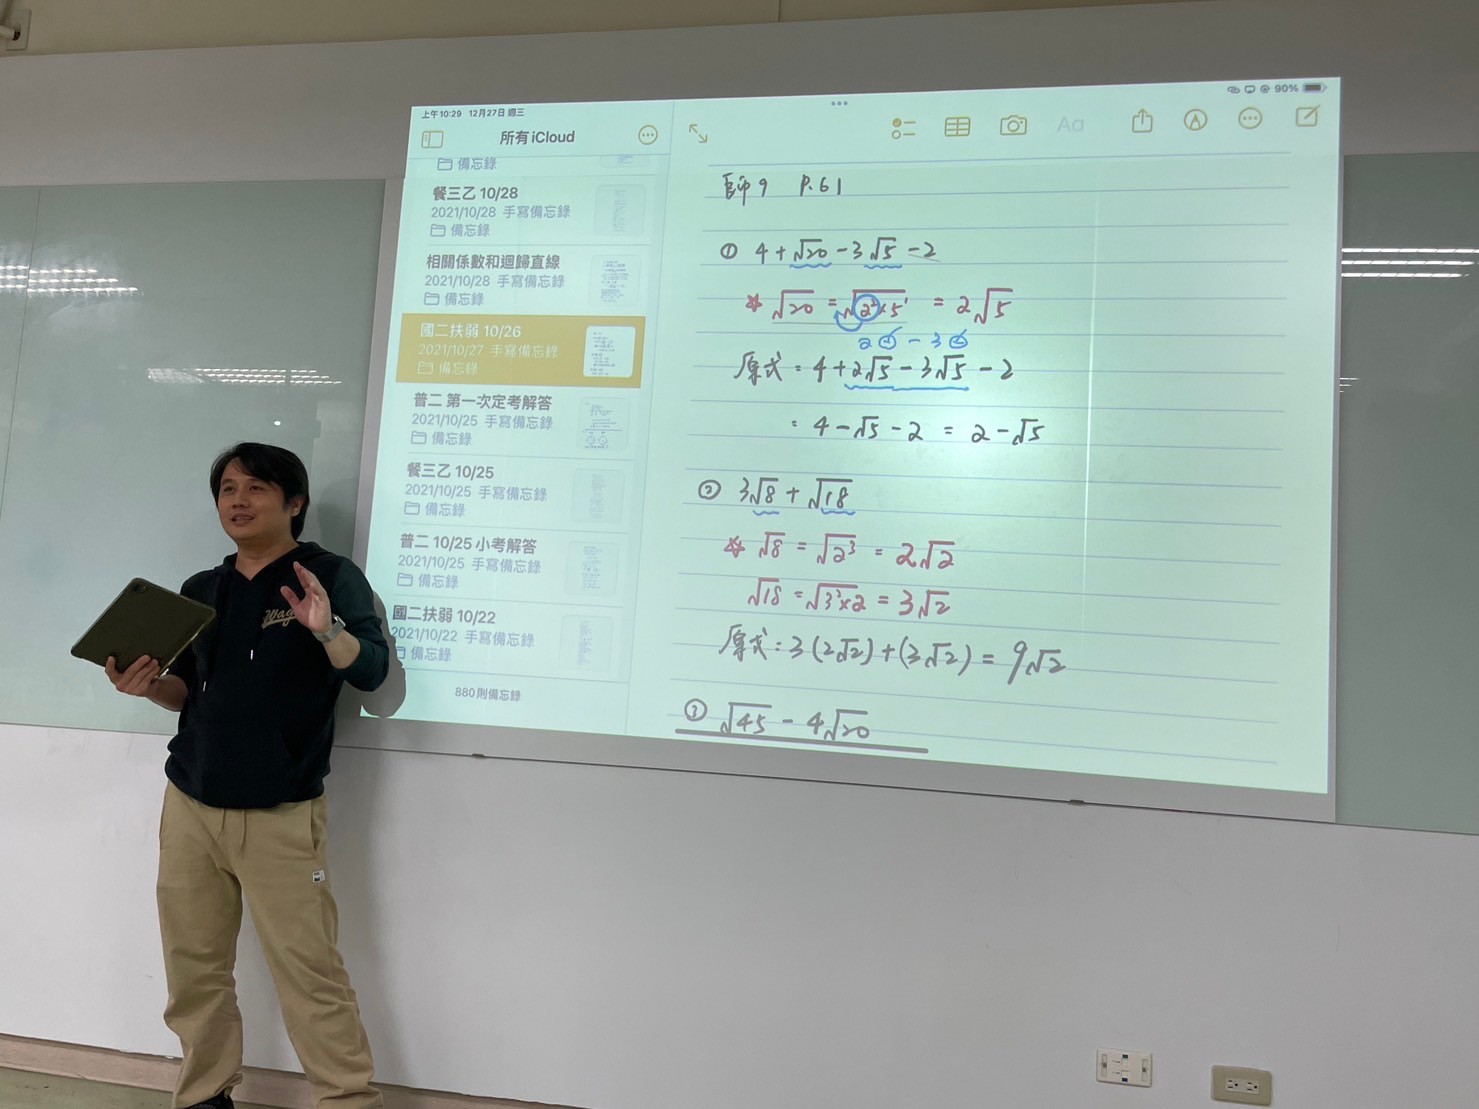 上午10:29 12月27日 週三
90%
所有 iCloud
備忘錄
餐三乙 10/28
2021/10/28 手寫備忘錄
備忘錄
相關係數和迴歸直線
2021/10/28 手寫備忘錄
備忘錄
國二扶弱 10/26
2021/10/27 手寫備忘錄
備忘錄
普二 第一次定考解答
2021/10/25 手寫備忘錄
備忘錄
餐三乙 10/25
2021/10/25 手寫備忘錄
備忘錄
普二 10/25 小考解答
2021/10/25 手寫備忘錄
備忘錄
國二扶弱 10/22
2021/10/22 手寫備忘錄
備忘錄
880 則備忘錄
Aa
師9 P.61
① 4+√20-3√5-2
√20 = √2²×5¹ = 2√5
原式 = 4+2√5-3√5-2
= 4-√5-2 = 2-√5
② 3√8+√18
√8 = √2³ = 2√2
√18 = √3²×2 = 3√2
原式 = 3(2√2)+(3√2) = 9√2
③ √45-4√20